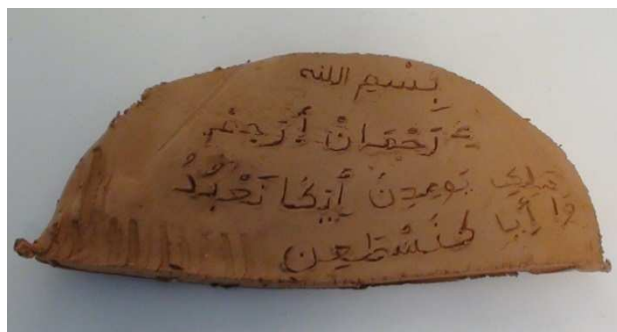 بِسْمِ اللله
رَحْمَانْ أرَجِمْ
مَلِكِ يَومِدِنَ أَإِكَا نَعْبُدُ
وَا أَيا كنَسْطَعِن